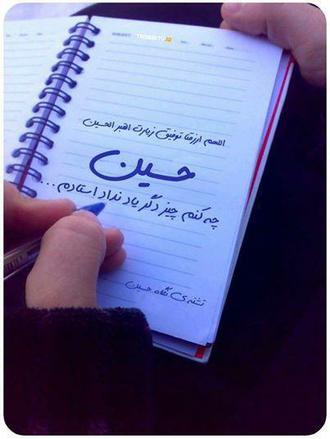 اللهم ارزقنا توفیق زیارت اقبر الحسین
حسین
چه کنم چیز دگر یاد نداد استادم...
تشنه ی نگاه حسین